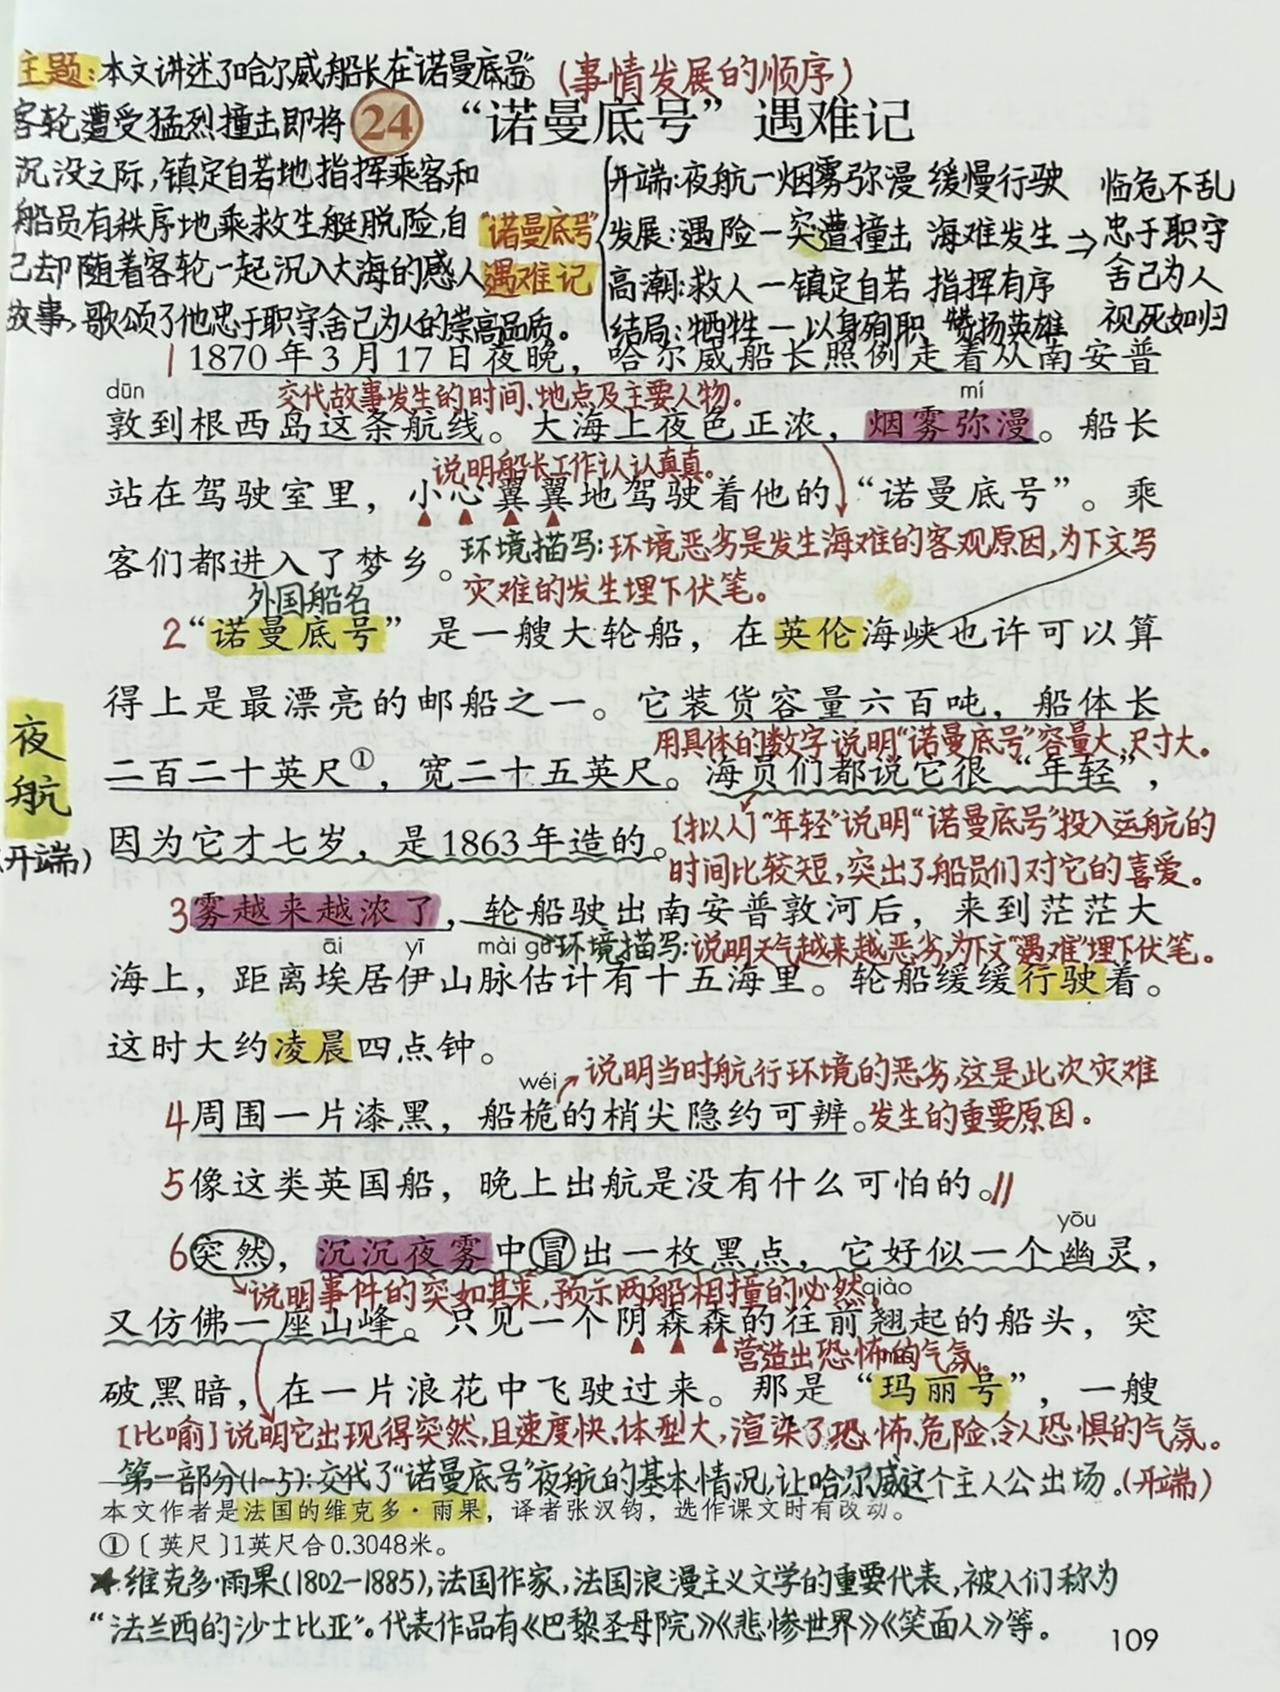 主题:本文讲述了哈尔威船长在"诺曼底号"
(事情发展的顺序)
客轮遭受猛烈撞击即将
24 “诺曼底号”遇难记
沉没之际,镇定自若地指挥乘客和
船员有秩序地乘救生艇脱险,自
己却随着客轮一起沉入大海的感人
故事,歌颂了他忠于职守舍己为人的崇高品质。
"诺曼底号"
遇难记
开端:夜航—烟雾弥漫 缓慢行驶
发展:遇险—突遭撞击 海难发生
高潮:救人—镇定自若 指挥有序
结局:牺牲—以身殉职 赞扬英雄
⇒
临危不乱
忠于职守
舍己为人
视死如归
1 1870年3月17日夜晚,哈尔威船长照例走着从南安普
dūn
交代故事发生的时间、地点及主要人物。
mí
敦到根西岛这条航线。大海上夜色正浓,烟雾弥漫。船长
说明船长工作认认真真。
站在驾驶室里,小心翼翼地驾驶着他的“诺曼底号”。乘
环境描写:环境恶劣是发生海难的客观原因,为下文写
客们都进入了梦乡。
灾难的发生埋下伏笔。
外国船名
2“诺曼底号”是一艘大轮船,在英伦海峡也许可以算
得上是最漂亮的邮船之一。它装货容量六百吨,船体长
用具体的数字说明"诺曼底号"容量大,尺寸大。
夜
航
(开端)
二百二十英尺①,宽二十五英尺。海员们都说它很“年轻”,
[拟人]"年轻"说明"诺曼底号"投入运航的
因为它才七岁,是1863年造的。
时间比较短,突出了船员们对它的喜爱。
3雾越来越浓了,轮船驶出南安普敦河后,来到茫茫大
āi yī mài gū
环境描写:说明天气越来越恶劣,为下文"遇难"埋下伏笔。
海上,距离埃居伊山脉估计有十五海里。轮船缓缓行驶着。
这时大约凌晨四点钟。
wéi
说明当时航行环境的恶劣,这是此次灾难
4周围一片漆黑,船桅的梢尖隐约可辨。
发生的重要原因。
5像这类英国船,晚上出航是没有什么可怕的。//
yōu
6突然,沉沉夜雾中冒出一枚黑点,它好似一个幽灵,
说明事件的突如其来,预示两船相撞的必然。
qiào
又仿佛一座山峰。只见一个阴森森的往前翘起的船头,突
营造出恐怖的气氛。
破黑暗,在一片浪花中飞驶过来。那是“玛丽号”,一艘
[比喻]说明它出现得突然,且速度快,体型大,渲染了恐怖、危险、令人恐惧的气氛。
第一部分(1~5):交代了"诺曼底号"夜航的基本情况,让哈尔威这个主人公出场。(开端)
本文作者是法国的维克多·雨果,译者张汉钧,选作课文时有改动。
①〔英尺〕1英尺合0.3048米。
★维克多·雨果(1802-1885),法国作家,法国浪漫主义文学的重要代表,被人们称为
"法兰西的沙士比亚"。代表作品有《巴黎圣母院》《悲惨世界》《笑面人》等。
109